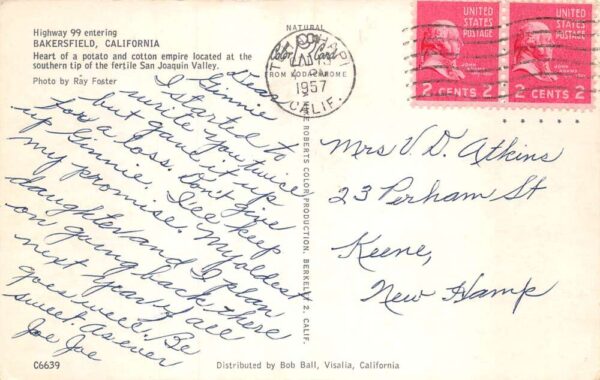 Highway 99 entering
BAKERSFIELD, CALIFORNIA
Heart of a potato and cotton empire located at the
southern tip of the fertile San Joaquin Valley.
Photo by Ray Foster
Dear
Ginnie
I started to
write you twice
but gave it up
for a loss. Don't give
up Ginnie. I'll keep
my promise. My oldest
daughter and I plan
on going back there
next year if all
goes well. Be
sweet. As ever
Joe Joe
C6639
NATURAL
Color Card
FROM KODACHROME
1957
CALIF.
ROBERTS COLOR PRODUCTION, BERKELEY 2, CALIF.
UNITED
STATES
POSTAGE
JOHN
ADAMS
2 CENTS 2
UNITED
STATES
POSTAGE
JOHN
ADAMS
2 CENTS 2
Mrs V. D. Atkins
23 Perham St
Keene,
New Hamp
Distributed by Bob Ball, Visalia, California